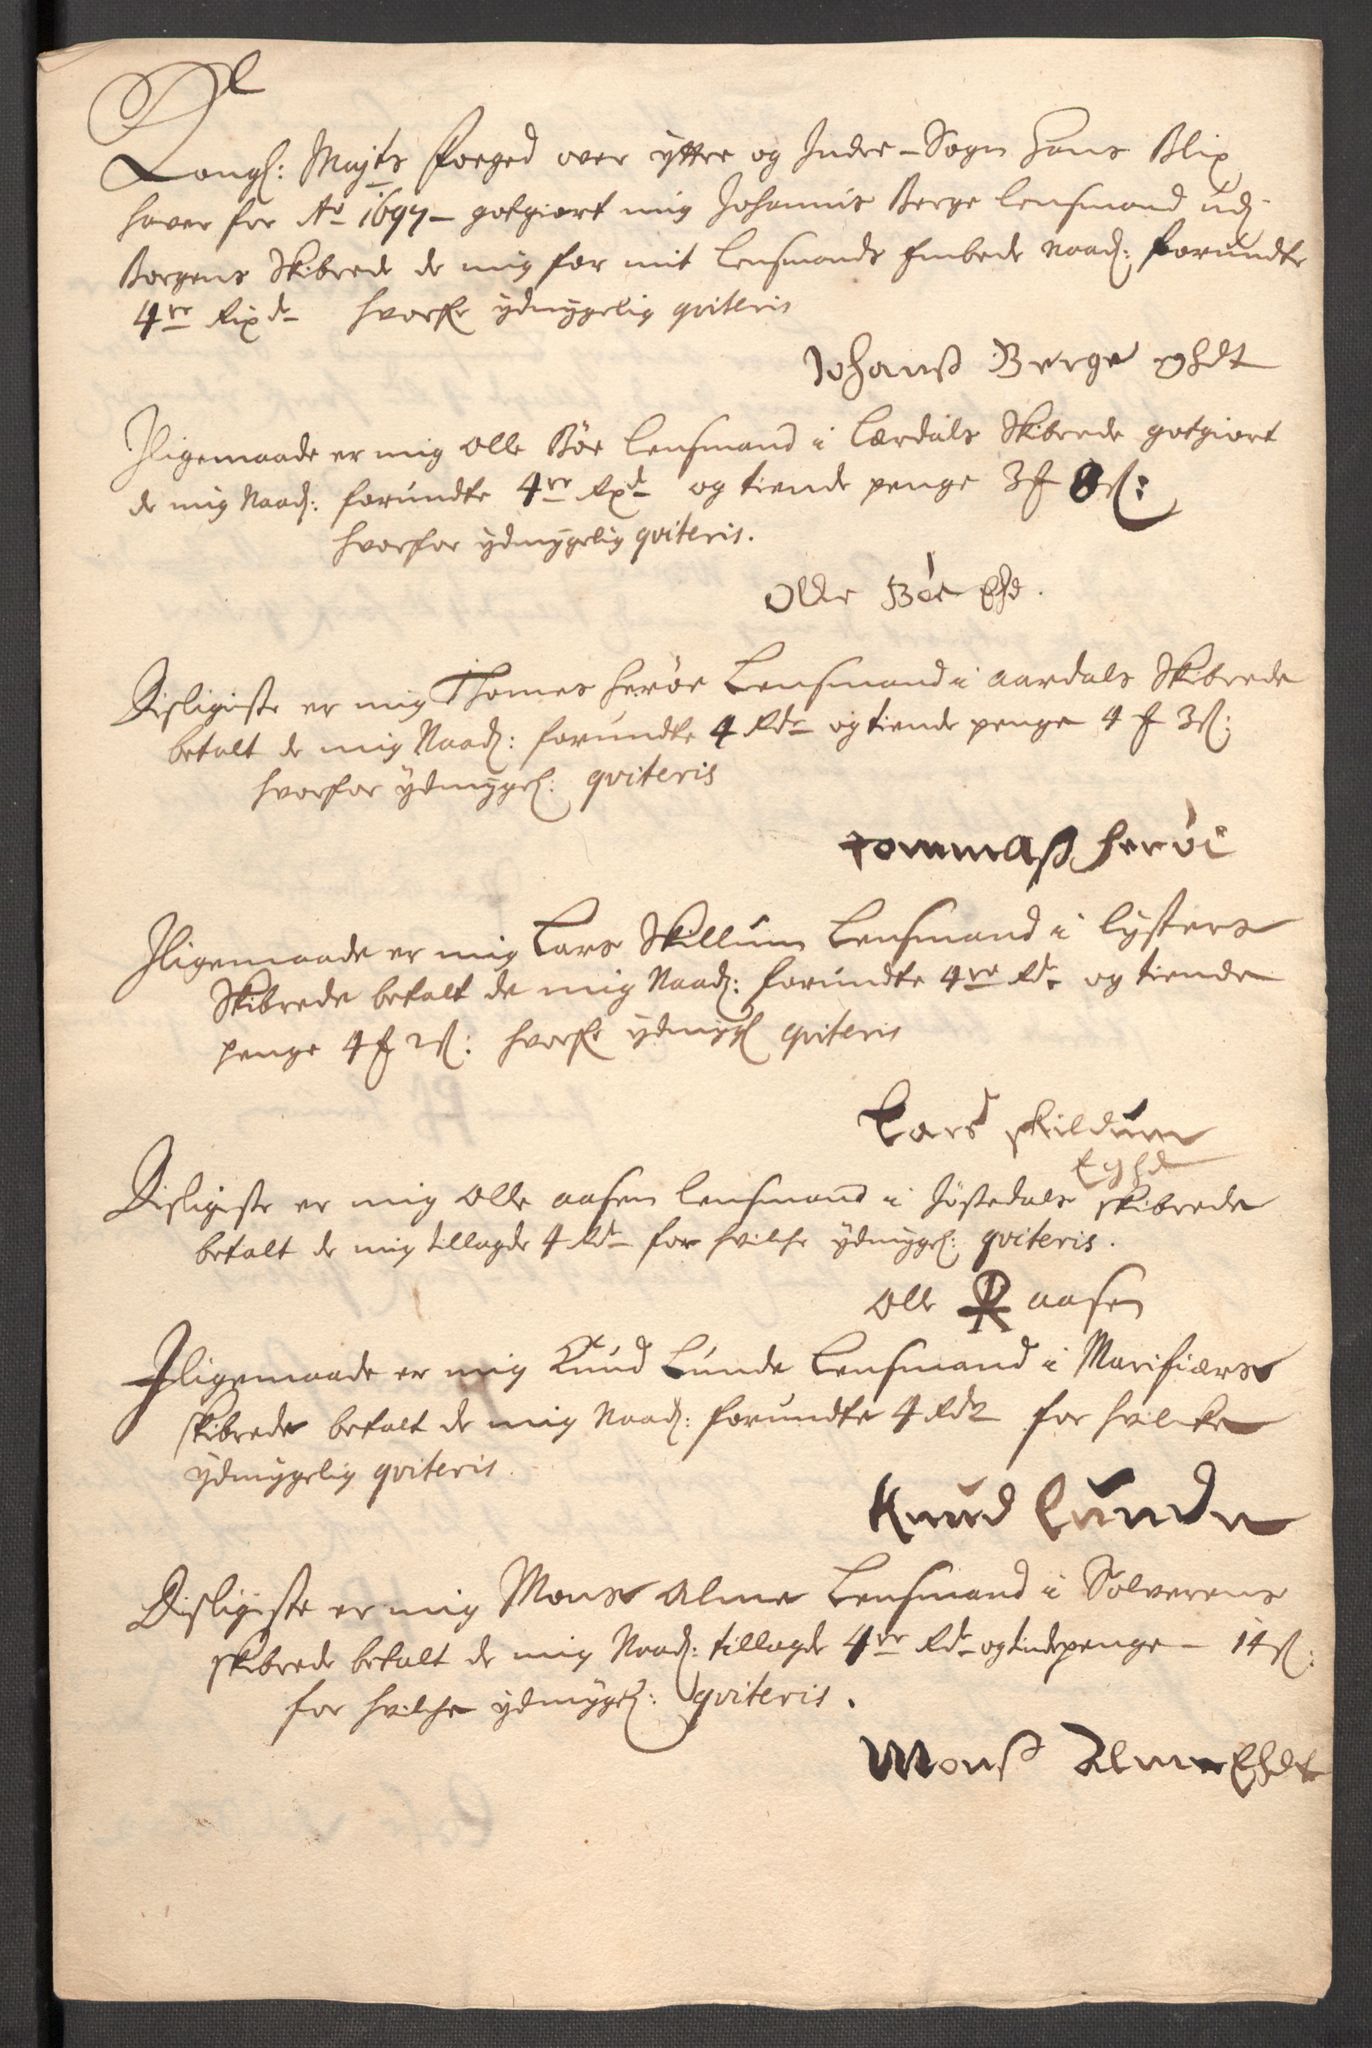 Kongl: Mayts Foeged over yttre og Indre-Sogn Hans Blix
haver for Ao 1697 - gotgiort mig Johannis Berge Lensmand udj
Borgens Skibrede de mig for mit Lensmands Embede Naad: forundte
4re Rixdr hvorfor ydmygelig qviteris
Johanß Berge
Iligemaade er mig Olle Böe Lensmand i Lærdals Skibrede gotgiort
de mig Naad: forundte 4re Rxdr og tiende penge 3 f 8 ß:
hvorfor ydmygelig qviteris.
Olle Böe Ehd.
Disligeste er mig Thomes Heröe Lensmand i Aardals Skibrede
betalt de mig Naad: forundte 4 Rdr og tiende penge 4 f 3 ß:
hvorfor ydmygel: qviteris
Tommaß Heröe
Iligemaade er mig Lars Skillum Lensmand i Lysters
Skibrede betalt de mig Naad: forundte 4re Rdr og tiende
penge 4 f 2 ß: hvorfor ydmygl qviteris
Lars Skildum
Eghd
Disligeste er mig Olle Aasen Lensmand i Jöstedals Skibrede
betalt de mig tillagde 4 Rdr for hvilche ydmygel: qviteris.
Olle Aasen
Iligemaade er mig Knud Lunde Lensmand i Marifiærs
skibrede betalt de mig Naad: forundte 4 Rdr for hvilcke
ydmygelig qviteris.
Knud Lunde
Disligeste er mig Mons Alme Lensmand i Solverens
skibrede betalt de mig Naad: tillagde 4re Rdr og tindepenge - 14 ß:
for hvilche ydmygel: qviteris.
Monß Alme Ehdt